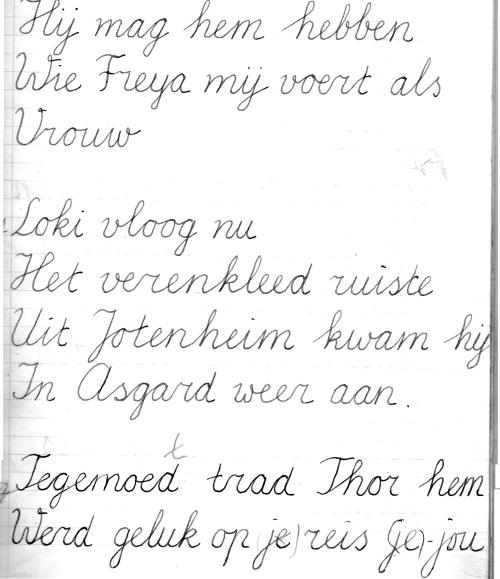 Hij mag hem hebben
Wie Freya mij voert als
Vrouw
Loki vloog nu
Het verenkleed ruiste
Uit Jotenheim kwam hij
In Asgard weer aan.
t
Tegemoed trad Thor hem
Werd geluk op (je) reis (je)-jou